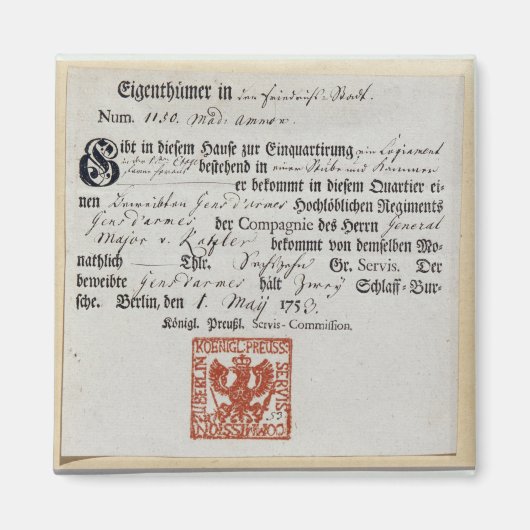 Eigenthümer in den Friedrichs-Stadt.
Num. 1150. Mad: Ammon.
Gibt in diesem Hause zur Einquartirung ein Logiament
in der 1ten Etage
bestehend in einer Stube und Kammer
er bekommt in diesem Quartier ei-
nen Beweibten Gens d'armes Hochlöblichen Regiments
Gens d'armes der Compagnie des Herrn General
Major v. Katzler bekommt von demselben Mo-
nathlich Thlr. Sechszehn Gr. Servis. Der
beweibte Gens d'armes hält Zwey Schlaff-Bur-
sche. Berlin, den 1. Maÿ 1753.
Königl. Preußl. Servis-Commission.
KOENIGL·PREUSS·
SERVIS
COMMISSION
ZU BERLIN
17 53